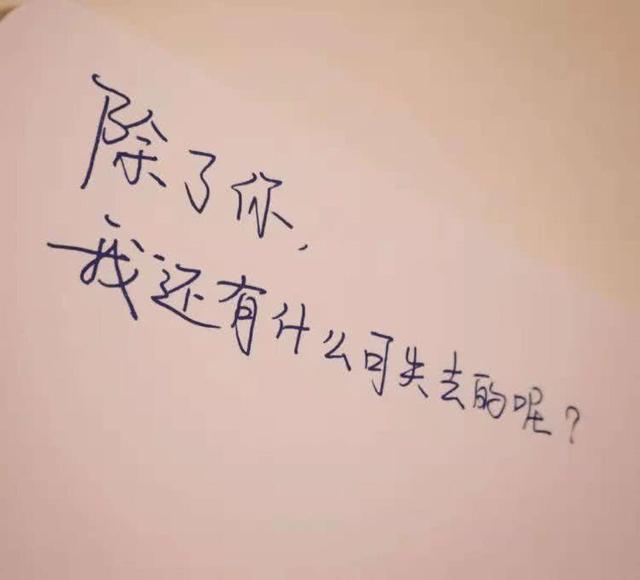 除了你,
我还有什么可失去的呢?